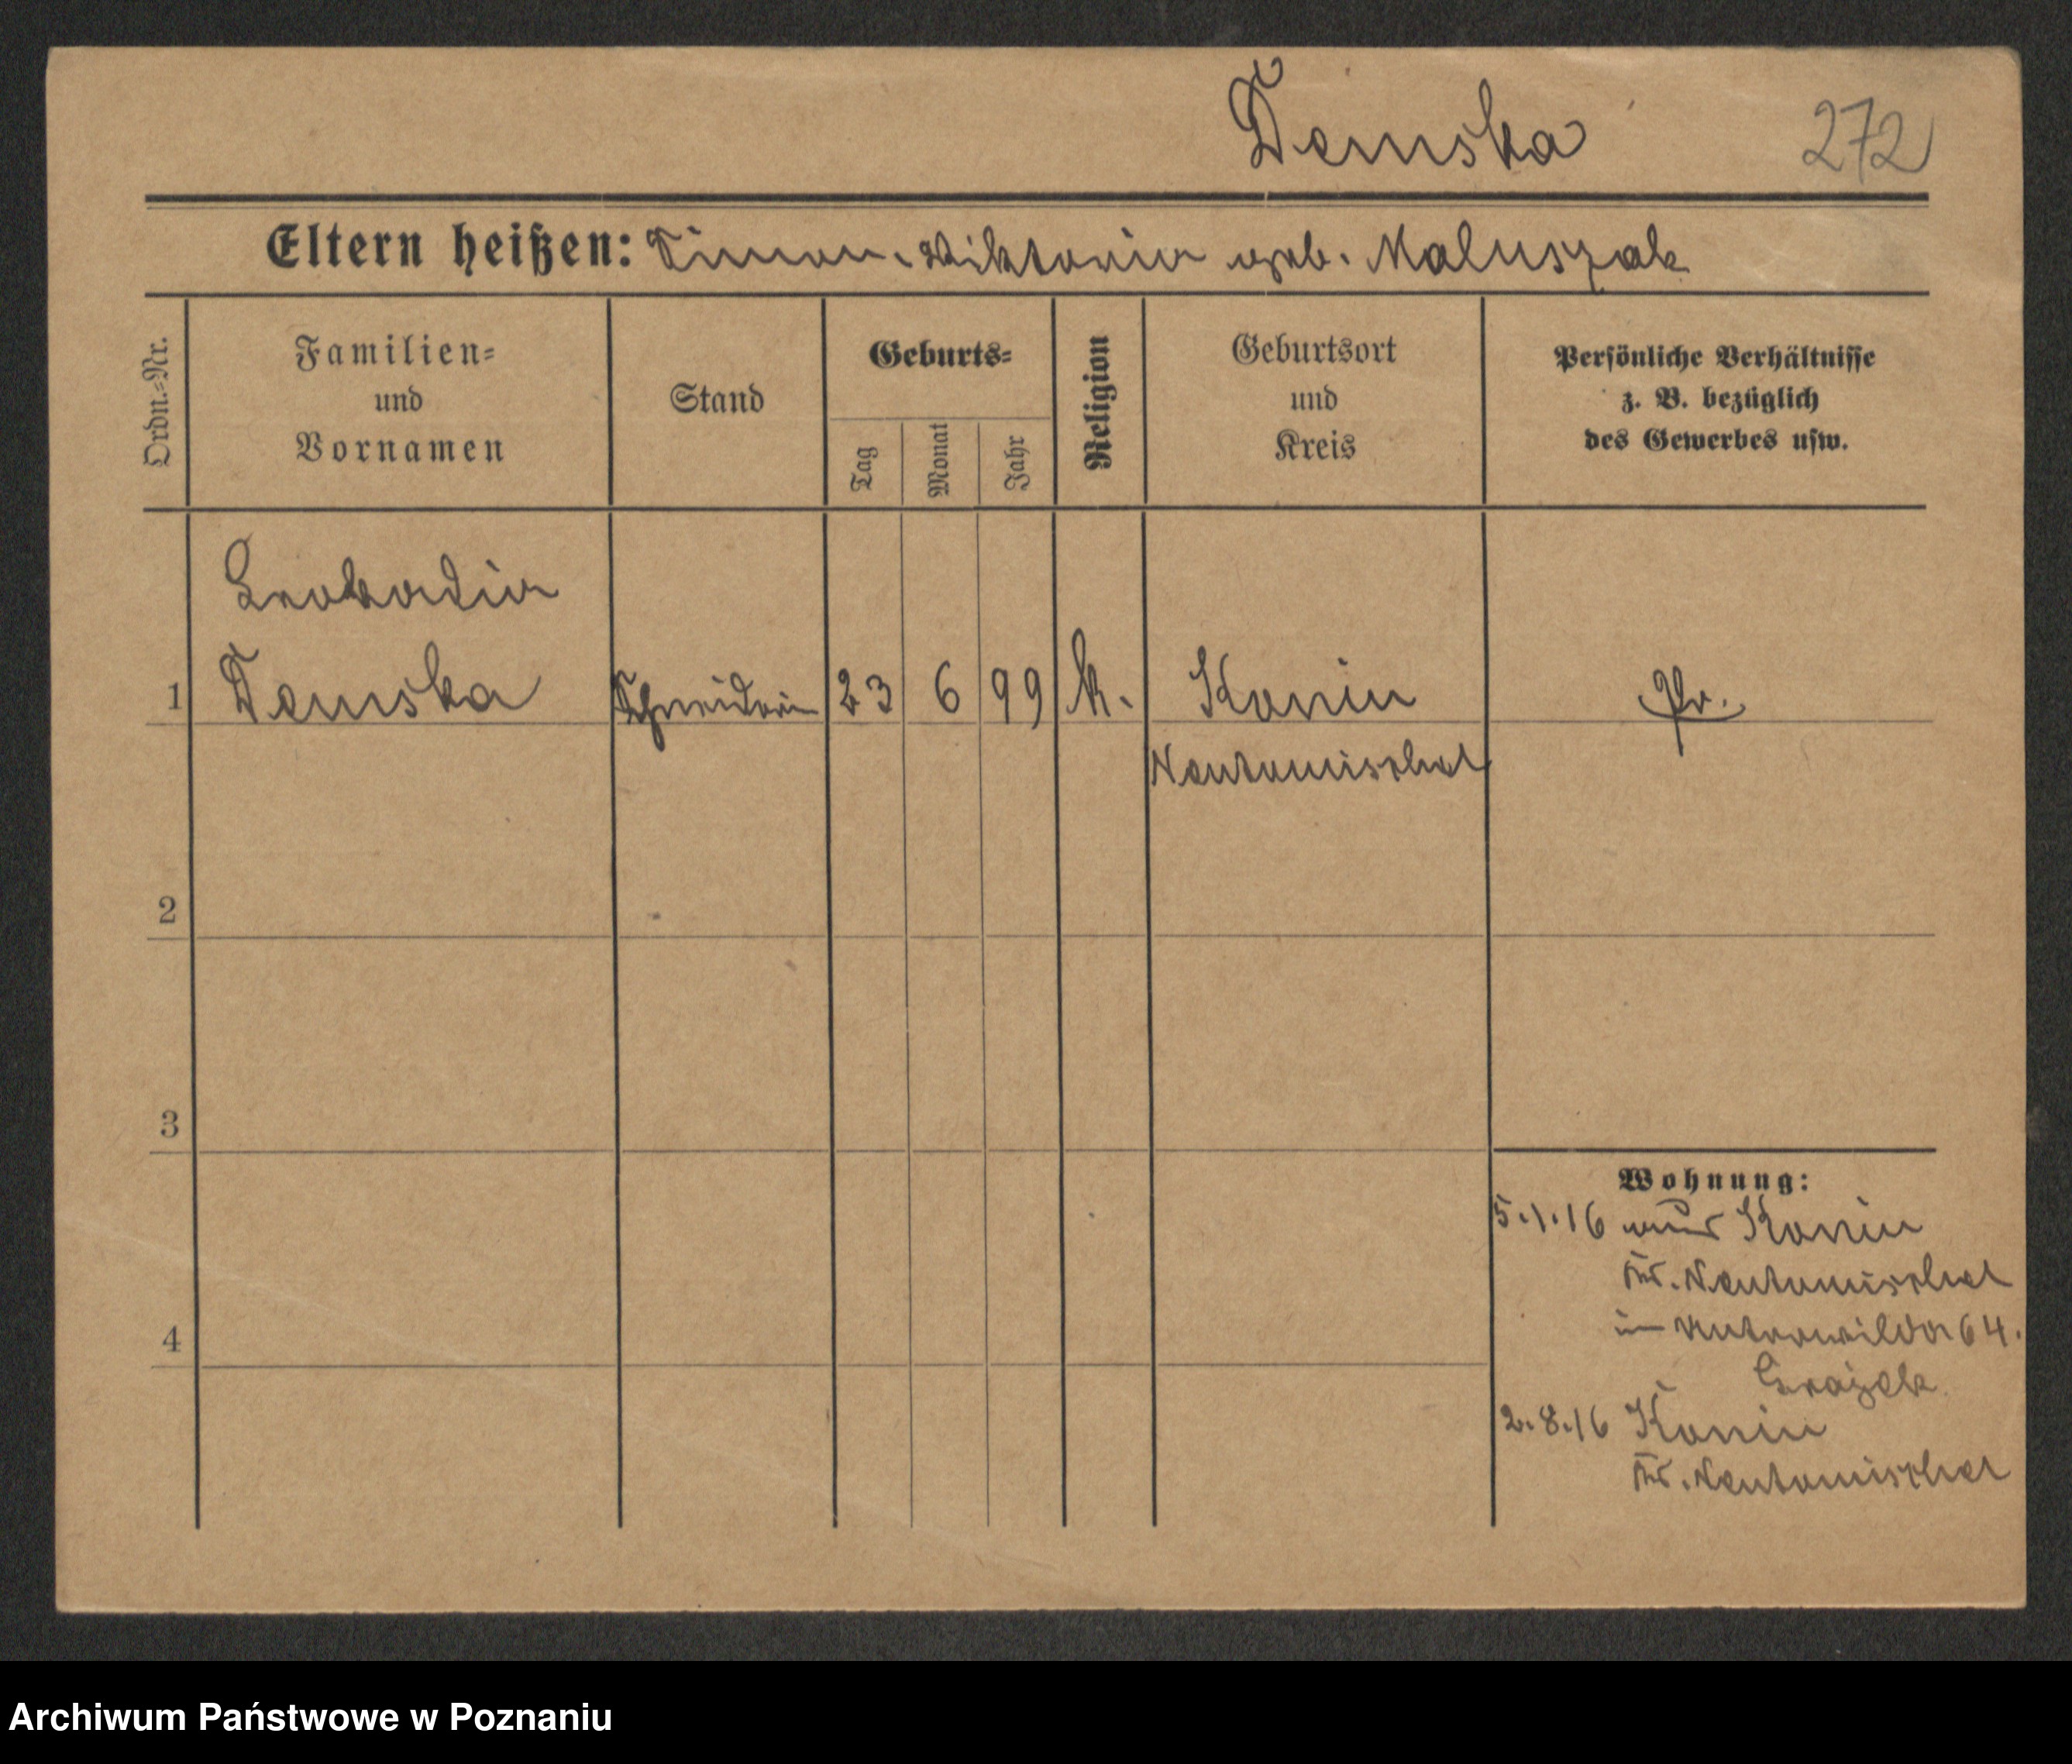 Demska 272
Eltern heißen: Simon. Viktoria geb. Maluszak
Ordn.-Nr.
Familien-
und
Vornamen
Stand
Geburts-
Tag
Monat
Jahr
Religion
Geburtsort
und
Kreis
Persönliche Verhältnisse
z. B. bezüglich
des Gewerbes usw.
Leokadia
1 Demska Schneiderin 23 6 99 k. Konin Pr.
Neutomischel
2
3
Wohnung:
5.1.16 aus Konin
Kr. Neutomischel
in Unterwilda 64.
4
2.8.16 Konin
Kr. Neutomischel
Archiwum Państwowe w Poznaniu